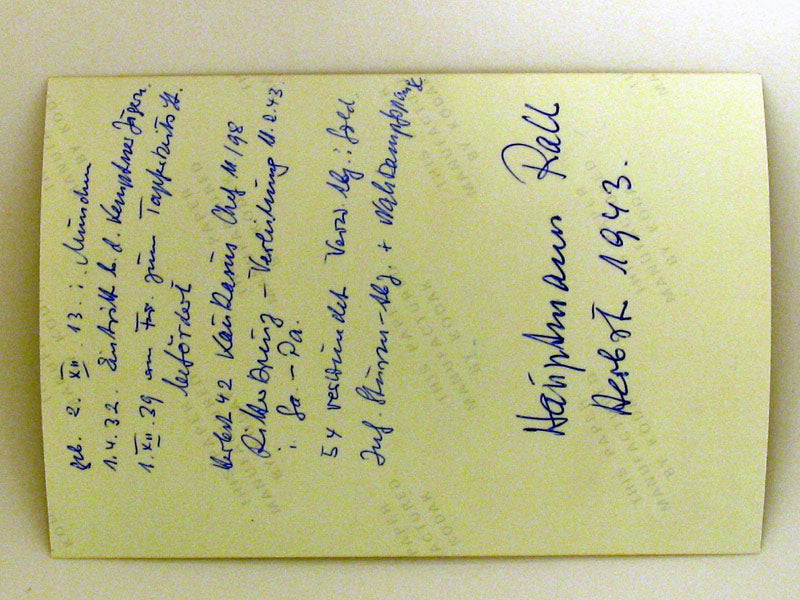 geb. 2. XII. 13. i. München
1.4.32. Eintritt b. d. Kemptener Jägern.
1. XII. 39 am zum Tapferkeits
befördert
Herbst 42 Kaukasus Chef 11/98
Ritterkreuz - Verleihung 11.2.43.
i. Ga.-Pa.
5 x verwundet Verw. Abz. i. Gold.
Inf. Sturm-Abz. + Nahkampfspange
Hauptmann Rall
Herbst 1943.
THIS PAPER
MANUFACTURED
BY KODAK